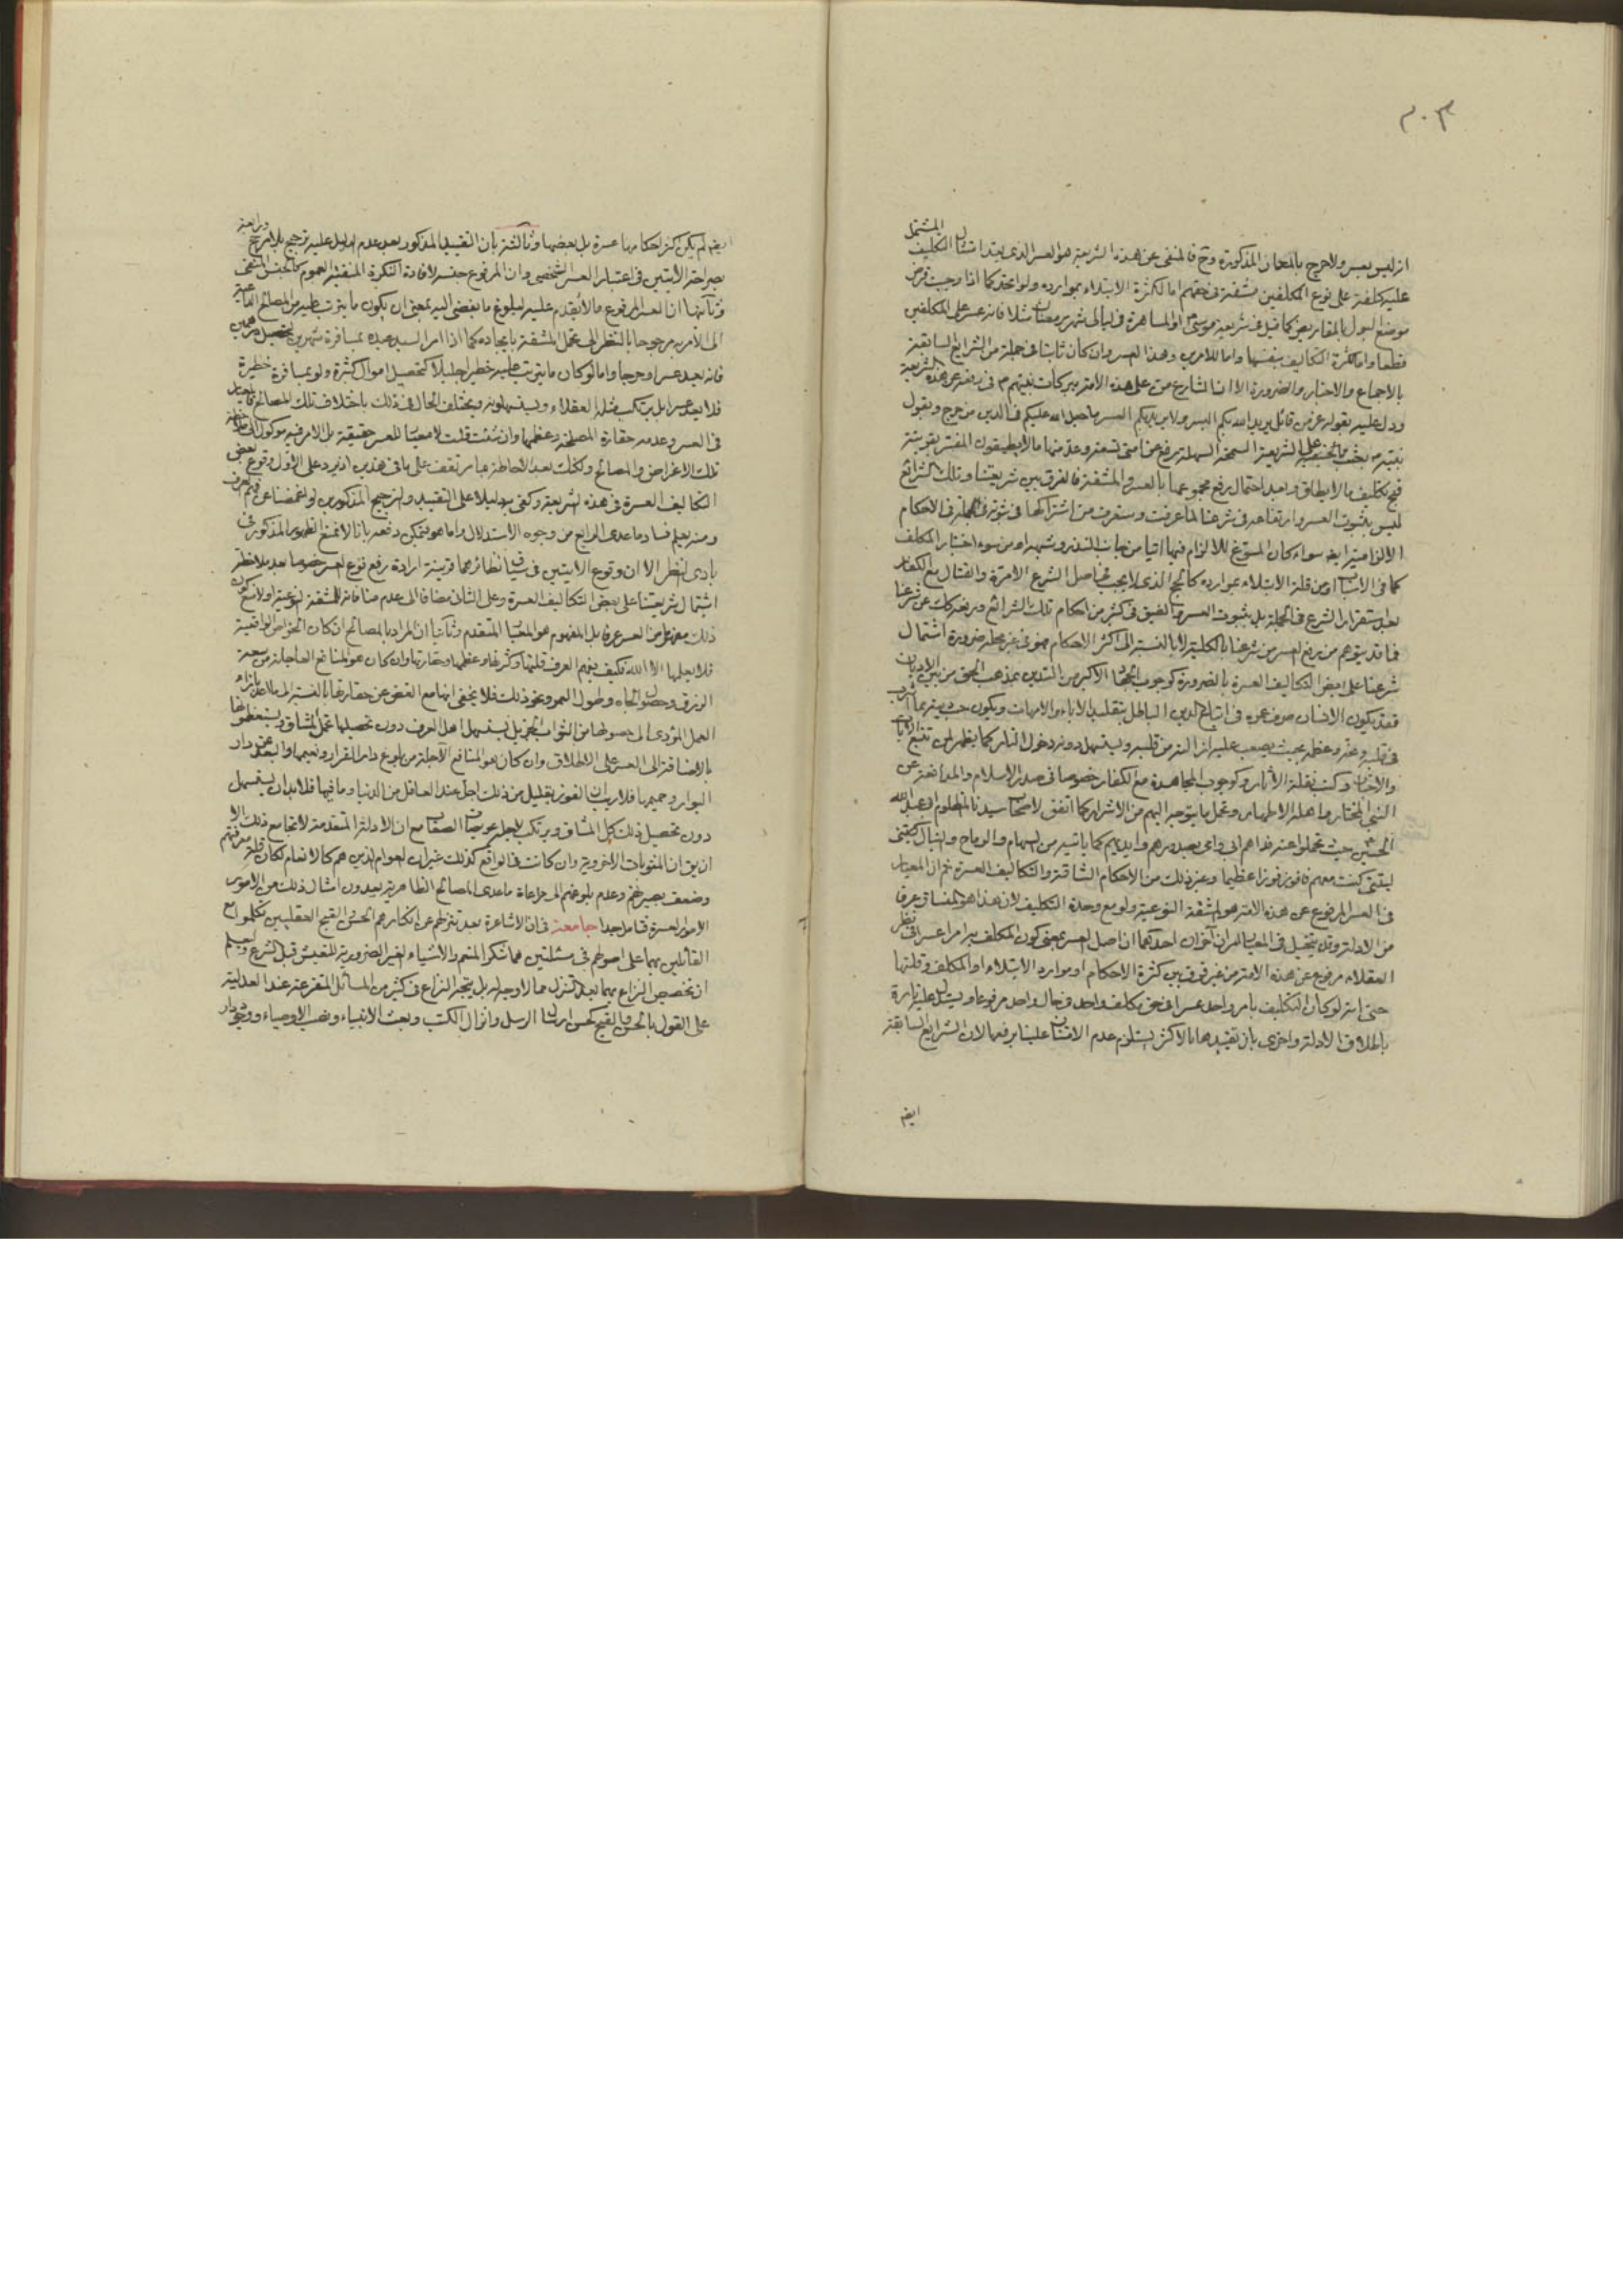 ٣٠٢
المشتمل
از ليس بعسر ولا حرج بالمعان المذكورة وح فالمنفى عن هذه الشريعة هو العسر الذى بعد امتثال التكليف
عليه كلفة على نوع المكلفين مشقة فى حقهم اما لكثرة الابتلاء بموارده ولو اتحد كما اذا وجبت قرض
موضع البول بالمقاريض كما قيل فى شريعة موسى او المساهرة فى ليالى شهر رمضان مثلا فانه عسر على المكلفين
قطعا واما لكثرة التكاليف بنفسها واما للامرين وهذا العسر وان كان ثابتا فى جملة من الشرايع السابقة
بالاجماع والاخبار والضرورة الا ان الشارع من على هذه الامة ببركات نبيهم م فى رفعه عن هذه الشريعة
ودل عليه بقوله عز من قائل يريد الله بكم اليسر ولا يريد بكم العسر ما جعل الله عليكم فى الدين من حرج وبقول
نبيه م بعثت بالحنيفية الشريعة السمحة السهلة ورفع عن امتى تسعة وعد منها ما لا يطيقون المفسر بقرينة
قبح تكليف ما لا يطاق وبعد احتمال رفع مجموعهما بالعسر والمشقة فالفرق بين شريعتنا وتلك الشرائع
ليس بثبوت العسر وارتفاعه فى شرعنا لما عرفت وستعرف من اشتراكها فى ثبوته فى الجملة فى الاحكام
الالزامية ايضا سواء كان المسوغ للالزام فيها اتيا من جانب النذر وشبهه او من سوء اختيار المكلف
كما فى الاسباب او من قلة الابتلاء بموارده كالحج الذى لا يجب فى اصل الشرع الا مرة والقتال مع الكفار
بعد استقرار الشرع فى الجملة بل بثبوت العسر والضيق فى كثير من احكام تلك الشرائع وبرفع ذلك عن شرعنا
فما قد يتوهم من رفع العسر من شرعنا بالكلية لا بالنسبة الى اكثر الاحكام فهو فى غير محله ضرورة اشتمال
شرعنا على بعض التكاليف العسرة بالضرورة كوجوب الجهاد الاكبر من التدين بمذهب الحق من بين الاديان
فقد يكون الانسان صرف عمره فى اتباع الدين الباطل بتقليد الاباء والامهات ويكون حب دينهما اشرب
فى قلبه وعزه وعظمه بحيث يصعب عليه ازالته من قلبه ويستسهل دونه دخول النار كما يظهر لمن تتبع الايات
والاخبار وكتب نقلة الاثار وكوجوب المجاهدة مع الكفار خصوصا فى صدر الاسلام والمدافعة عن
النبى المختار واهله الاطهار وتحمل ما يتوجه اليهم من الاشرار كما اتفق لاصحاب سيدنا المظلوم ابى عبد الله
الحسين حيث تحملوا عنه فداهم ابى وامى بصدورهم وايديهم كما ياتيه من السهام والرماح والنبال فيا ليتنى
ليتنى كنت معهم فافوز فوزا عظيما وغير ذلك من الاحكام الشاقة والتكاليف العسرة ثم ان المعيار
فى العسر المرفوع عن هذه الامة هو المشقة النوعية ولو مع وحدة التكليف لان هذا هو المنساق عرفا
من الادلة وقد يتخيل فى المعيار امران آخران احدهما ان اصل العسر بمعنى كون المكلف به امرا عسرا فى نظر
العقلاء مرفوع عن هذه الامة من غير فرق بين كثرة الاحكام او موارد الابتلاء او المكلف وقلتها
حتى انه لو كان التكليف بامر واحد عسرا فى حق مكلف واحد فى حال واحد مرفوعا ويستدل عليه تارة
باطلاق الادلة واخرى بان تقييدها بالاكثر يستلزم عدم الامتنان علينا برفعها لان الشرايع السابقة
ايض
ورابعة
ايض لم يكن اكثر احكامها عسرة بل بعضها وثالثة بان التقييد المذكور بعد عدم الدليل عليه ترجيح بلا مرجح
بصراحة الايتين فى اعتبار العسر الشخصى وان المرفوع جنسه لافادة النكرة المنفية العموم كالجنس المنفى
وثانيهما ان العسر المرفوع ما لا يقدم عليه لبلوغ ما يفضى اليه بمعنى ان يكون ما يترتب عليه من المصالح العائدة
الى الامر به مرجوحا بالنظر الى تحمل المشقة بايجاده كما اذا امر السيد عبده بمسافرة شهرين لتحصيل درهمين
فانه يعد عسرا وحرجا واما لو كان ما يترتب عليه خطيرا جليلا كتحصيل اموال كثيرة ولو بمسافرة خطيرة
فلا يعد عسرا بل يرتكب مثله العقلاء ويستسهلونه ويختلف الحال فى ذلك باختلاف تلك المصالح فالمعيار
فى العسر وعدمه حقارة المصلحة وعظمها وان شئت قلت لا معيار للعسر حقيقة بل الامر فيه موكول الى ملاحظة
تلك الاغراض والمصالح ولكنك بعد الاحاطة بما مر تقف على ما فى هذين اذ يرد على الاول وقوع بعض
التكاليف العسرة فى هذه الشريعة وكفى به دليلا على التقييد والترجيح المذكورين لو اغمضنا عن فهم العرف
ومنه يعلم فساد ما عدى الرابع من وجوه الاستدلال واما هو فيمكن دفعه بانا لا نمنع الظهور المذكور فى
بادى النظر الا ان وقوع الايتين فى سياق نظائرهما قرينة ارادة رفع نوع العسر خصوصا بعد ملاحظة
اشتمال شريعتنا على بعض التكاليف العسرة وعلى الثانى مضافا الى عدم منافاته للمشقة النوعية اولا منع كون
ذلك معيارا فى العسر عرفا بل المفهوم هو المعيار المتقدم وثانيا ان المراد بالمصالح ان كان الخواص الواقعية
فلا يعلمها الا الله فكيف يفهم العرف قلتها وكثرتها وعظمها وحقارتها وان كان هو المنافع العاجلة من سعة
الرزق وحصول الجاه وطول العمر ونحو ذلك فلا يخفى انها مع الغض عن حقارتها بالنسبة الى ما اعد بازاء
العمل المؤدى الى حصولها من الثواب الجزيل يستسهل اهل العرف دون تحصيلها تحمل المشاق ويستعظمونها
بالاضافة الى العسر على الاطلاق وان كان هو المنافع الآجلة من بلوغ دار القرار ونعيمها والبعد عن دار
البوار وجحيمها فلا ريب ان الفوز بقليل من ذلك اجل عند العاقل من الدنيا وما فيها فلا بد ان يستسهل
دون تحصيل ذلك كل المشاق ويرتكب لاجله عويصات الصعاب مع ان الادلة المتقدمة لا تجامع ذلك الا
ان يق ان المثوبات الاخروية وان كانت فى الواقع كذلك غير ان العوام الذين هم كالانعام لمكان قلة معرفتهم
وضعف بصيرتهم وعدم بلوغهم الى مراعاة ما عدى المصالح الظاهرية يعدون امثال ذلك من الامور
الامور العسرة فتامل جدا جامعة فى ان الاشاعرة بعد تنزلهم عن انكارهم الحسن والقبح العقليين تكلموا مع
القائلين بهما على اصولهم فى مسئلتين هما شكر المنعم والاشياء الغير الضرورية للتعيش قبل الشرع وليعلم
ان تخصيص النزاع بهما بعد التنزل مما لا وجه له بل يتجه النزاع فى كثير من المسائل المتفرعة عند العدلية
على القول بالحسن والقبح كحسن ارسال الرسل وانزال الكتب وبعث الانبياء ونصب الاوصياء ووجود دار